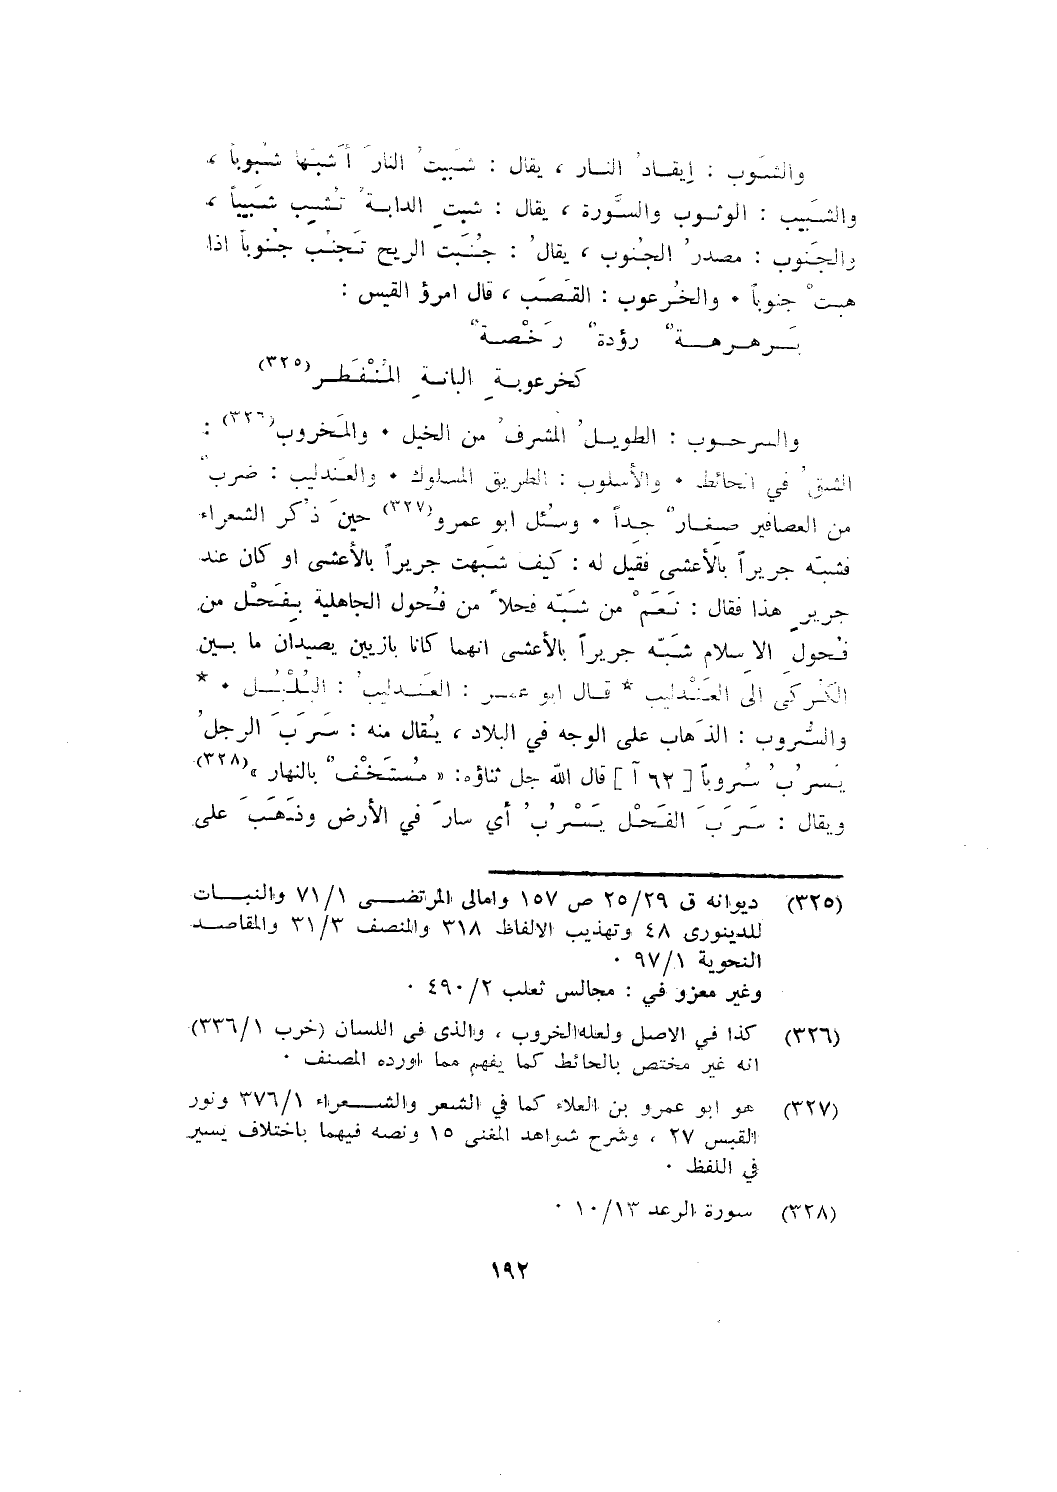 والشبوب : إيقادُ النار ، يقال : شَبَبتُ النارَ أشُبَّها شُبُوباً ،
والشَبيب : الوثوب والسَّورة ، يقال : شبتِ الدابةُ تَشِبُّ شَبيباً ،
والجَنوب : مصدرُ الجُنوب ، يقالُ : جُنَبت الريح تَجنُب جُنوباً اذا
هبتْ جنوباً ٠ والخُرعوب : القَصَب ، قال امرؤ القيس :
بَرهرهةٌ رؤدةٌ رَخْصةٌ
كخرعوبةِ البانةِ المُنْفَطر(٣٢٥)
والسرحوب : الطويلُ المشرفُ من الخيل ٠ والمَخروب(٣٢٦) :
الشقُ في الحائط ٠ والأسلوب : الطريق المسلوك ٠ والعَندليب : ضربٌ
من العصافير صغارٌ جداً ٠ وسُئل ابو عمرو(٣٢٧) حينَ ذُكر الشعراء
فشبّه جريراً بالأعشى فقيل له : كيف شبَهت جريراً بالأعشى او كان عند
جريرٍ هذا فقال : نَعَمْ من شَبّه فحلاً من فُحول الجاهلية بفَحْل من
فُحولِ الاسلام شَبّه جريراً بالأعشى انهما كانا بازيين يصيدان ما بين
الكُركي الى العَنْدليب * قال ابو عمر : العَندليبُ : البُلْبُل ٠ *
والسُروب : الذهاب على الوجه في البلاد ، يُقال منه : سَرَبَ الرجلُ
يَسرُبُ سُروباً [ ٦٢ آ ] قال الله جل ثناؤه: « مُستَخْفٌ بالنهار »(٣٢٨)
ويقال : سَرَبَ الفَحْل يَسْرُبُ أي سارَ في الأرض وذَهَبَ على
(٣٢٥) ديوانه ق ٢٥/٢٩ ص ١٥٧ وامالى المرتضى ٧١/١ والنبات
للدينورى ٤٨ وتهذيب الالفاظ ٣١٨ والمنصف ٣١/٣ والمقاصد
النحوية ٩٧/١ ٠
وغير معزو في : مجالس ثعلب ٤٩٠/٢ ٠
(٣٢٦) كذا في الاصل ولعله الخروب ، والذى فى اللسان (خرب ٣٣٦/١)
انه غير مختص بالحائط كما يفهم مما اورده المصنف ٠
(٣٢٧) هو ابو عمرو بن العلاء كما في الشعر والشعراء ٣٧٦/١ ونور
القبس ٢٧ ، وشرح شواهد المغنى ١٥ ونصه فيهما باختلاف يسير
في اللفظ ٠
(٣٢٨) سورة الرعد ١٠/١٣ ٠
١٩٢